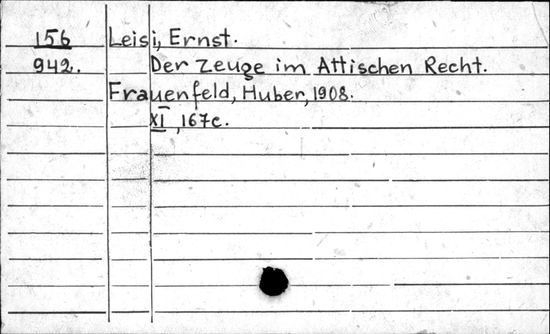 156 Leisi, Ernst.
942. Der Zeuge im Attischen Recht.
Frauenfeld, Huber, 1908.
XI, 167c.